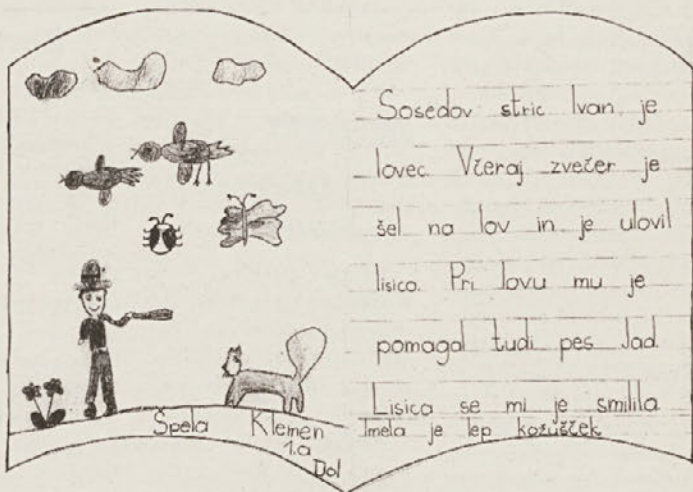 Špela Klemen
1.a
Dol
Sosedov stric Ivan je
lovec. Včeraj zvečer je
šel na lov in je ulovil
lisico. Pri lovu mu je
pomagal tudi pes Jad.
Lisica se mi je smilila
Imela je lep kožušček